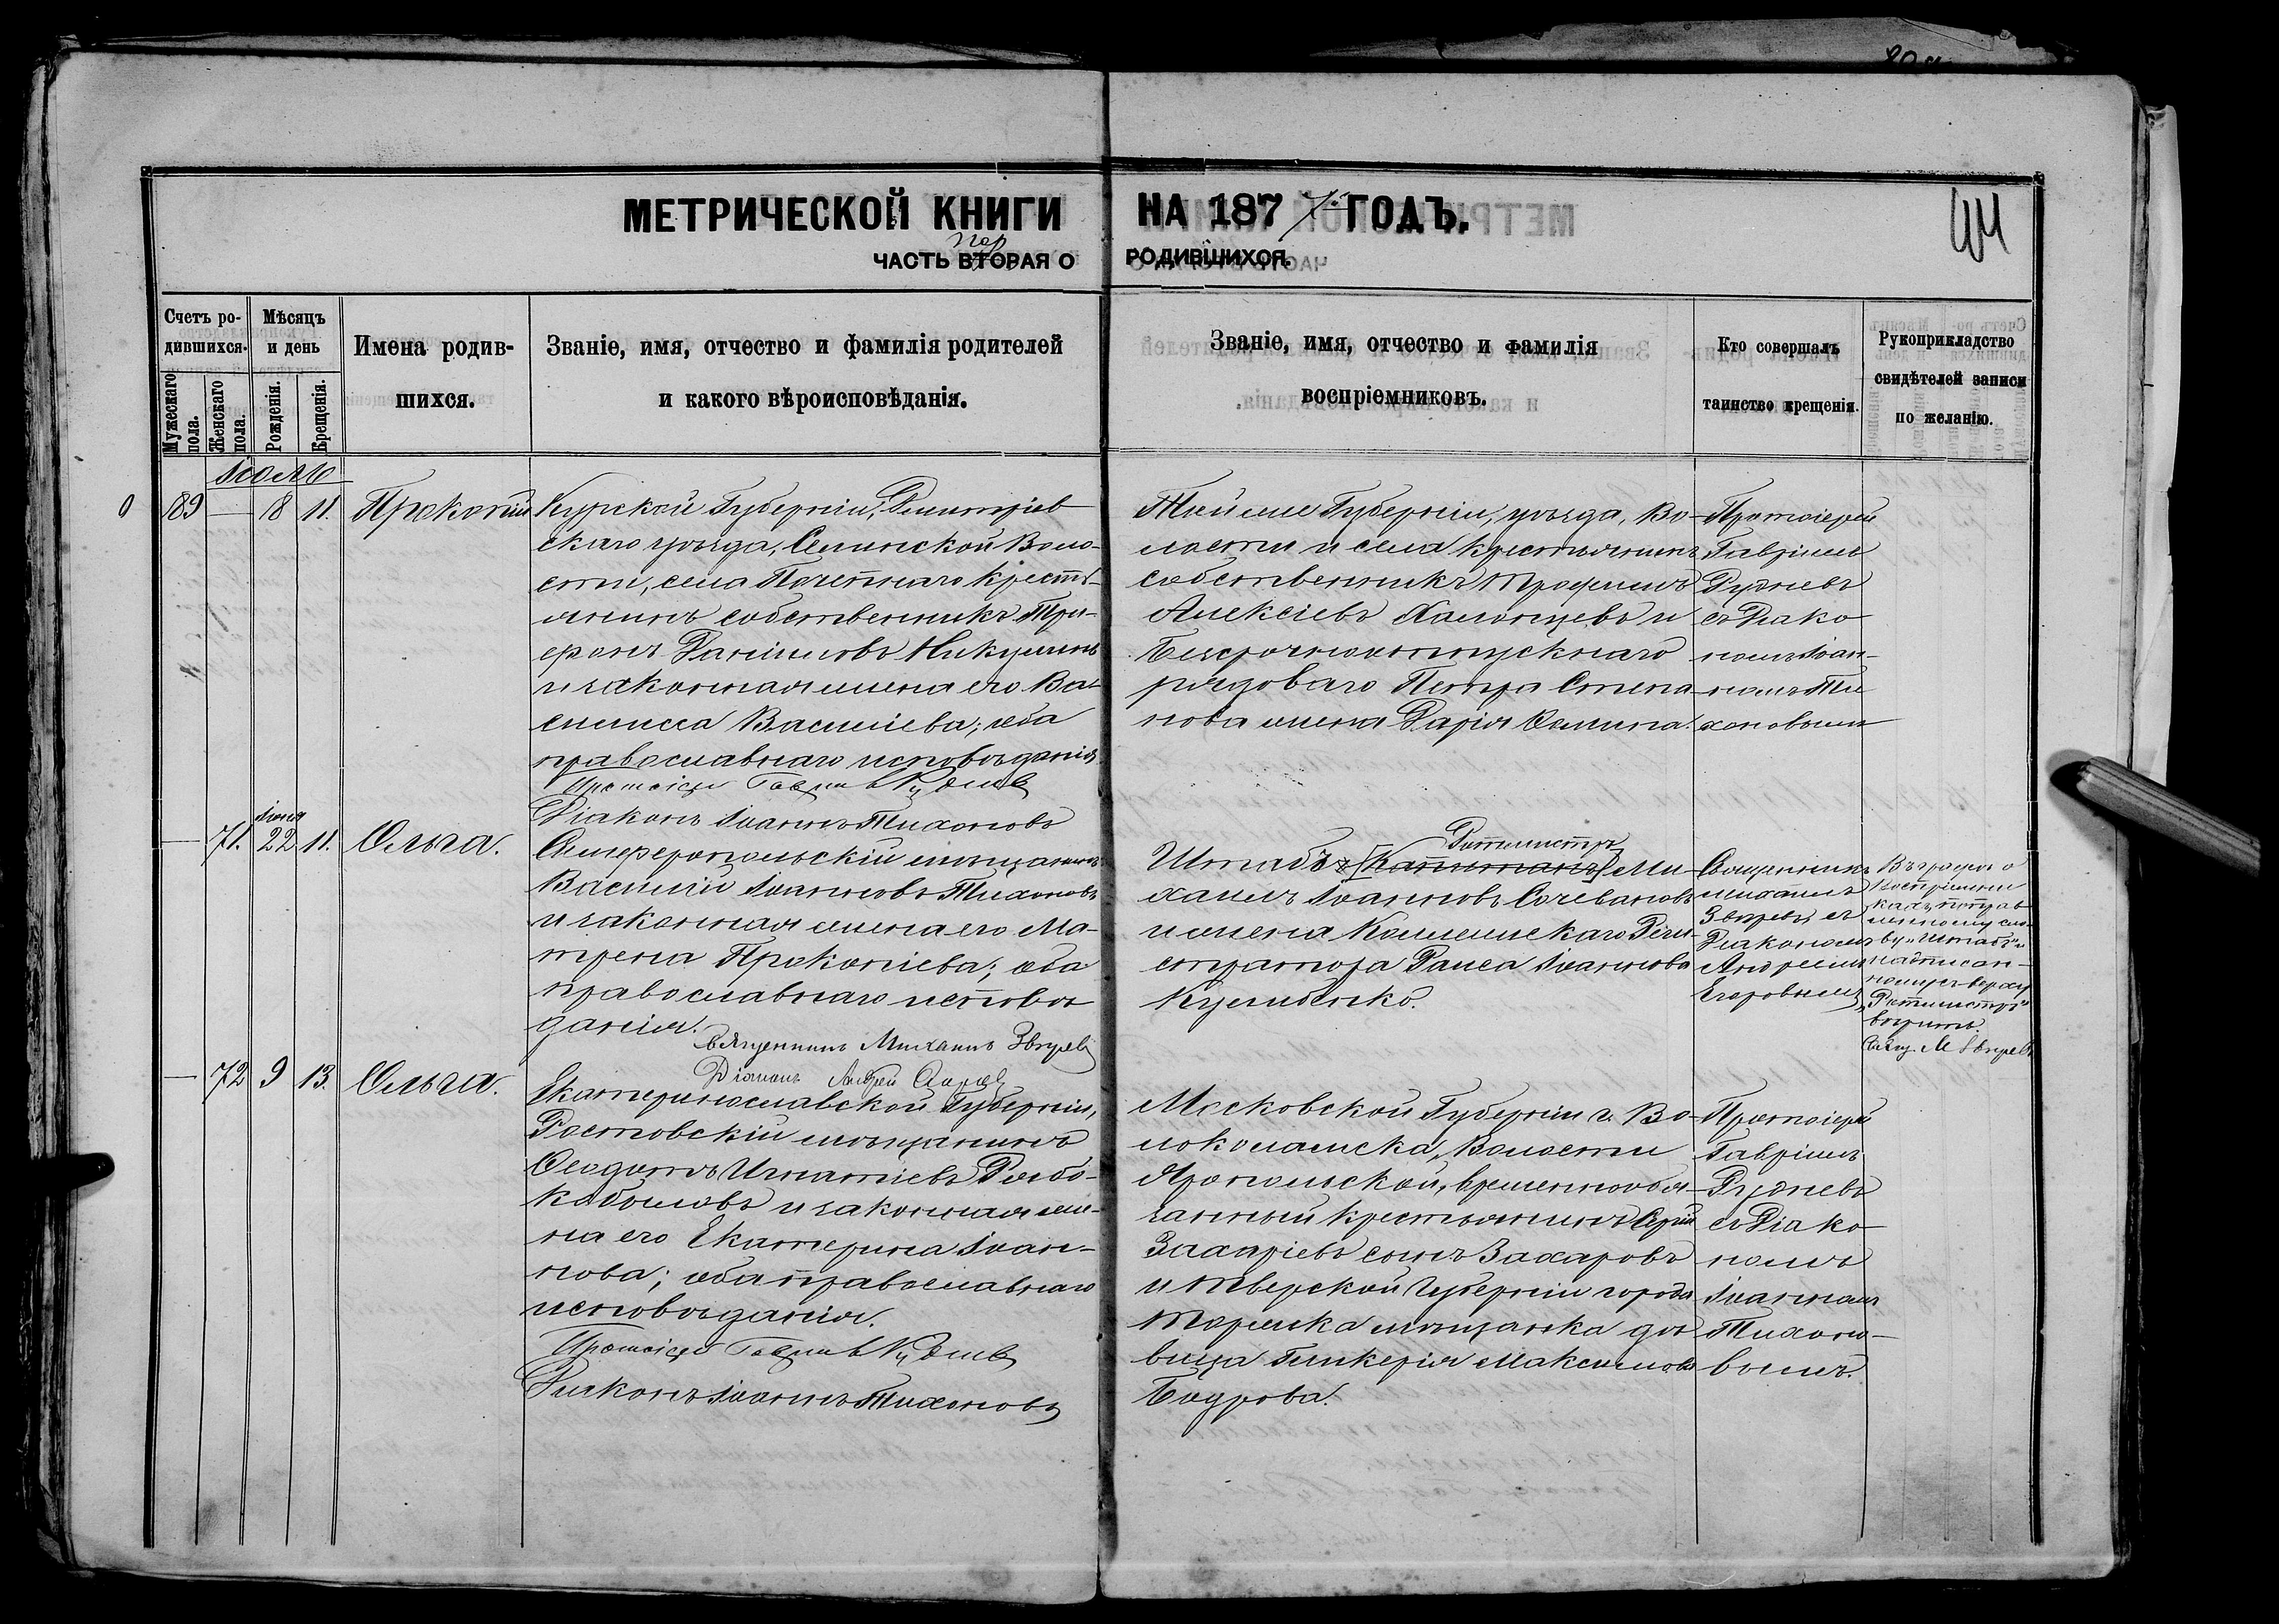 МЕТРИЧЕСКОЙ КНИГИ НА 1877 ГОДЪ.
пер
ЧАСТЬ ВТОРАЯ О РОДИВШИХСЯ.
44
Счетъ ро-
дившихся.
Мужескаго пола.
Женскаго пола.
Мѣсяцъ
и день
Рожденія.
Крещенія.
Имена родив-
шихся.
Званіе, имя, отчество и фамилія родителей
и какого вѣроисповѣданія.
Званіе, имя, отчество и фамилія
воспріемниковъ.
Кто совершалъ
таинство крещенія.
Рукоприкладство
свидѣтелей записи
по желанію.
Іюль
89 — 8 11. Прокопій
Курской Губерніи, Димитріев
скаго уѣзда, Селинской Воло-
сти, села Почепнаго Кресть-
янинъ собственникъ Три-
фонъ Даніиловъ Никулинъ
и законная жена его Ва-
силисса Василіева; оба
православнаго исповѣданія
Протоіерей Гавріилъ Рудневъ
Діаконъ Іоаннъ Тихоновъ
Той же Губерніи, уѣзда, Во-
лости и села крестьянинъ
собственникъ Трофимъ
Алексіевъ и
Безсрочноотпускнаго
рядоваго Петра Степа
нова жена Дарія Фомина.
Протоіерей
Гавріилъ
Рудневъ
съ Діако
номъ Іоан-
номъ Ти
хоновымъ
— 71. Іюня 22 11. Ольга.
Симферопольскій мѣщанинъ
Василій Іоанновъ Тихоновъ
и законная жена его Ма-
трена Прокопіева; оба
православнаго исповѣ
данія.
Священникъ Михаилъ Звѣревъ
Діаконъ Андрей
Ротмистръ
Штабъ Капитанъ Ми-
хаилъ Іоанновъ Сочевановъ
и жена Коллежскаго Реги-
стратора Раиса Іоаннова
Священникъ
Михаилъ
Звѣревъ съ
Діакономъ
Андреемъ
Егоровымъ
Въ графѣ о
воспріемни
кахъ, поправ
ленному сло-
ву „Штабъ" и
надписан-
ному сверху
„Ротмистръ"
вѣрить.
Свящ. М Звѣревъ
— 72 9 13. Ольга.
Екатеринославской Губерніи,
Ростовскій мѣщанинъ
Ѳеодотъ Игнатіевъ Рябо-
кобыловъ и законная же-
на его Екатерина Іоан-
нова; оба православнаго
исповѣданія.
Протоіерей Гавріилъ Рудневъ
Діаконъ Іоаннъ Тихоновъ
Московской Губерніи г. Во-
локоламска, Волости
Яропольской, временнообя-
занный крестьянинъ
Захаріевъ сынъ Захаровъ
и Тверской Губерніи города
Торжка мѣщанка дѣ
вица Гликерія Максимова
Бодрова.
Протоіерей
Гавріилъ
Рудневъ
съ Діако
номъ
Іоанномъ
Тихоно-
вымъ.